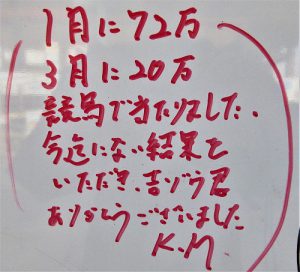 1月に72万
3月に20万
競馬で当たりました、
今迄にない結果を
いただき、吉ゾウ君
ありがとうございました
K.M